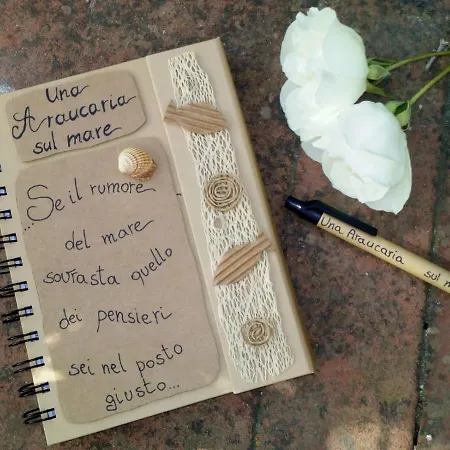 Una
Araucaria
sul mare
...Se il rumore
del mare
sovrasta quello
dei pensieri
sei nel posto
giusto...
Una Araucaria sul m